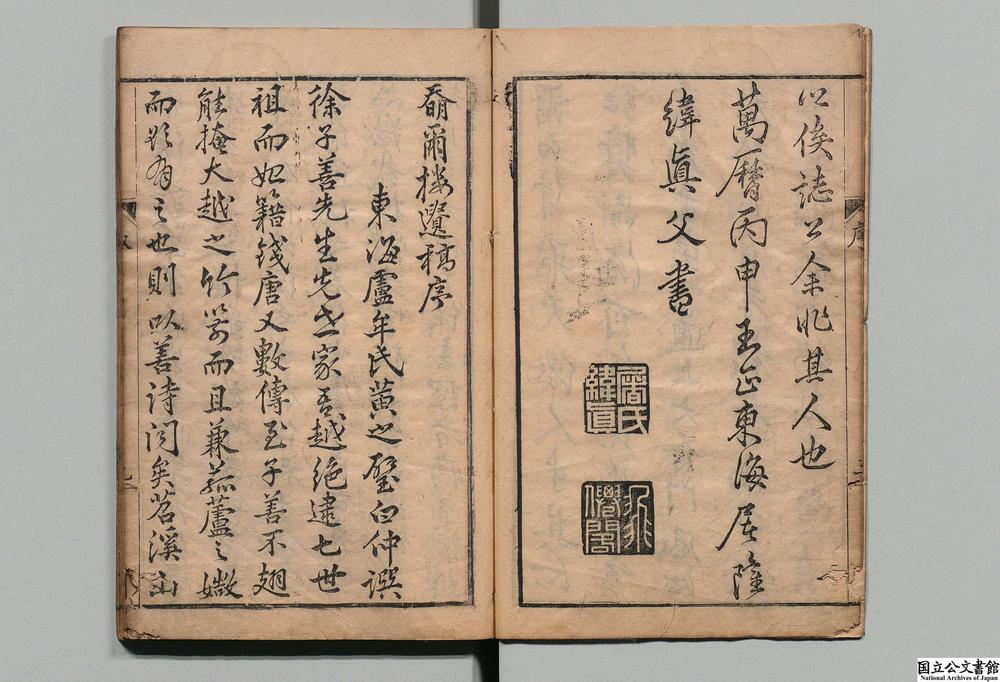 以俟誌公余非其人也
萬曆丙申王正東海屠隆
緯眞父書
屠氏
緯眞
序
鬅爾樓選稿序
東海盧牟氏黄之璧白仲譔
徐子善先生先世家吾越絶逮七世
祖而始籍錢唐又數傳至子善不翅
能掩大越之竹箭而且兼菰蘆之媺
而欲有之也則以善詩閧矣苕溪山
国立公文書館
National Archives of Japan